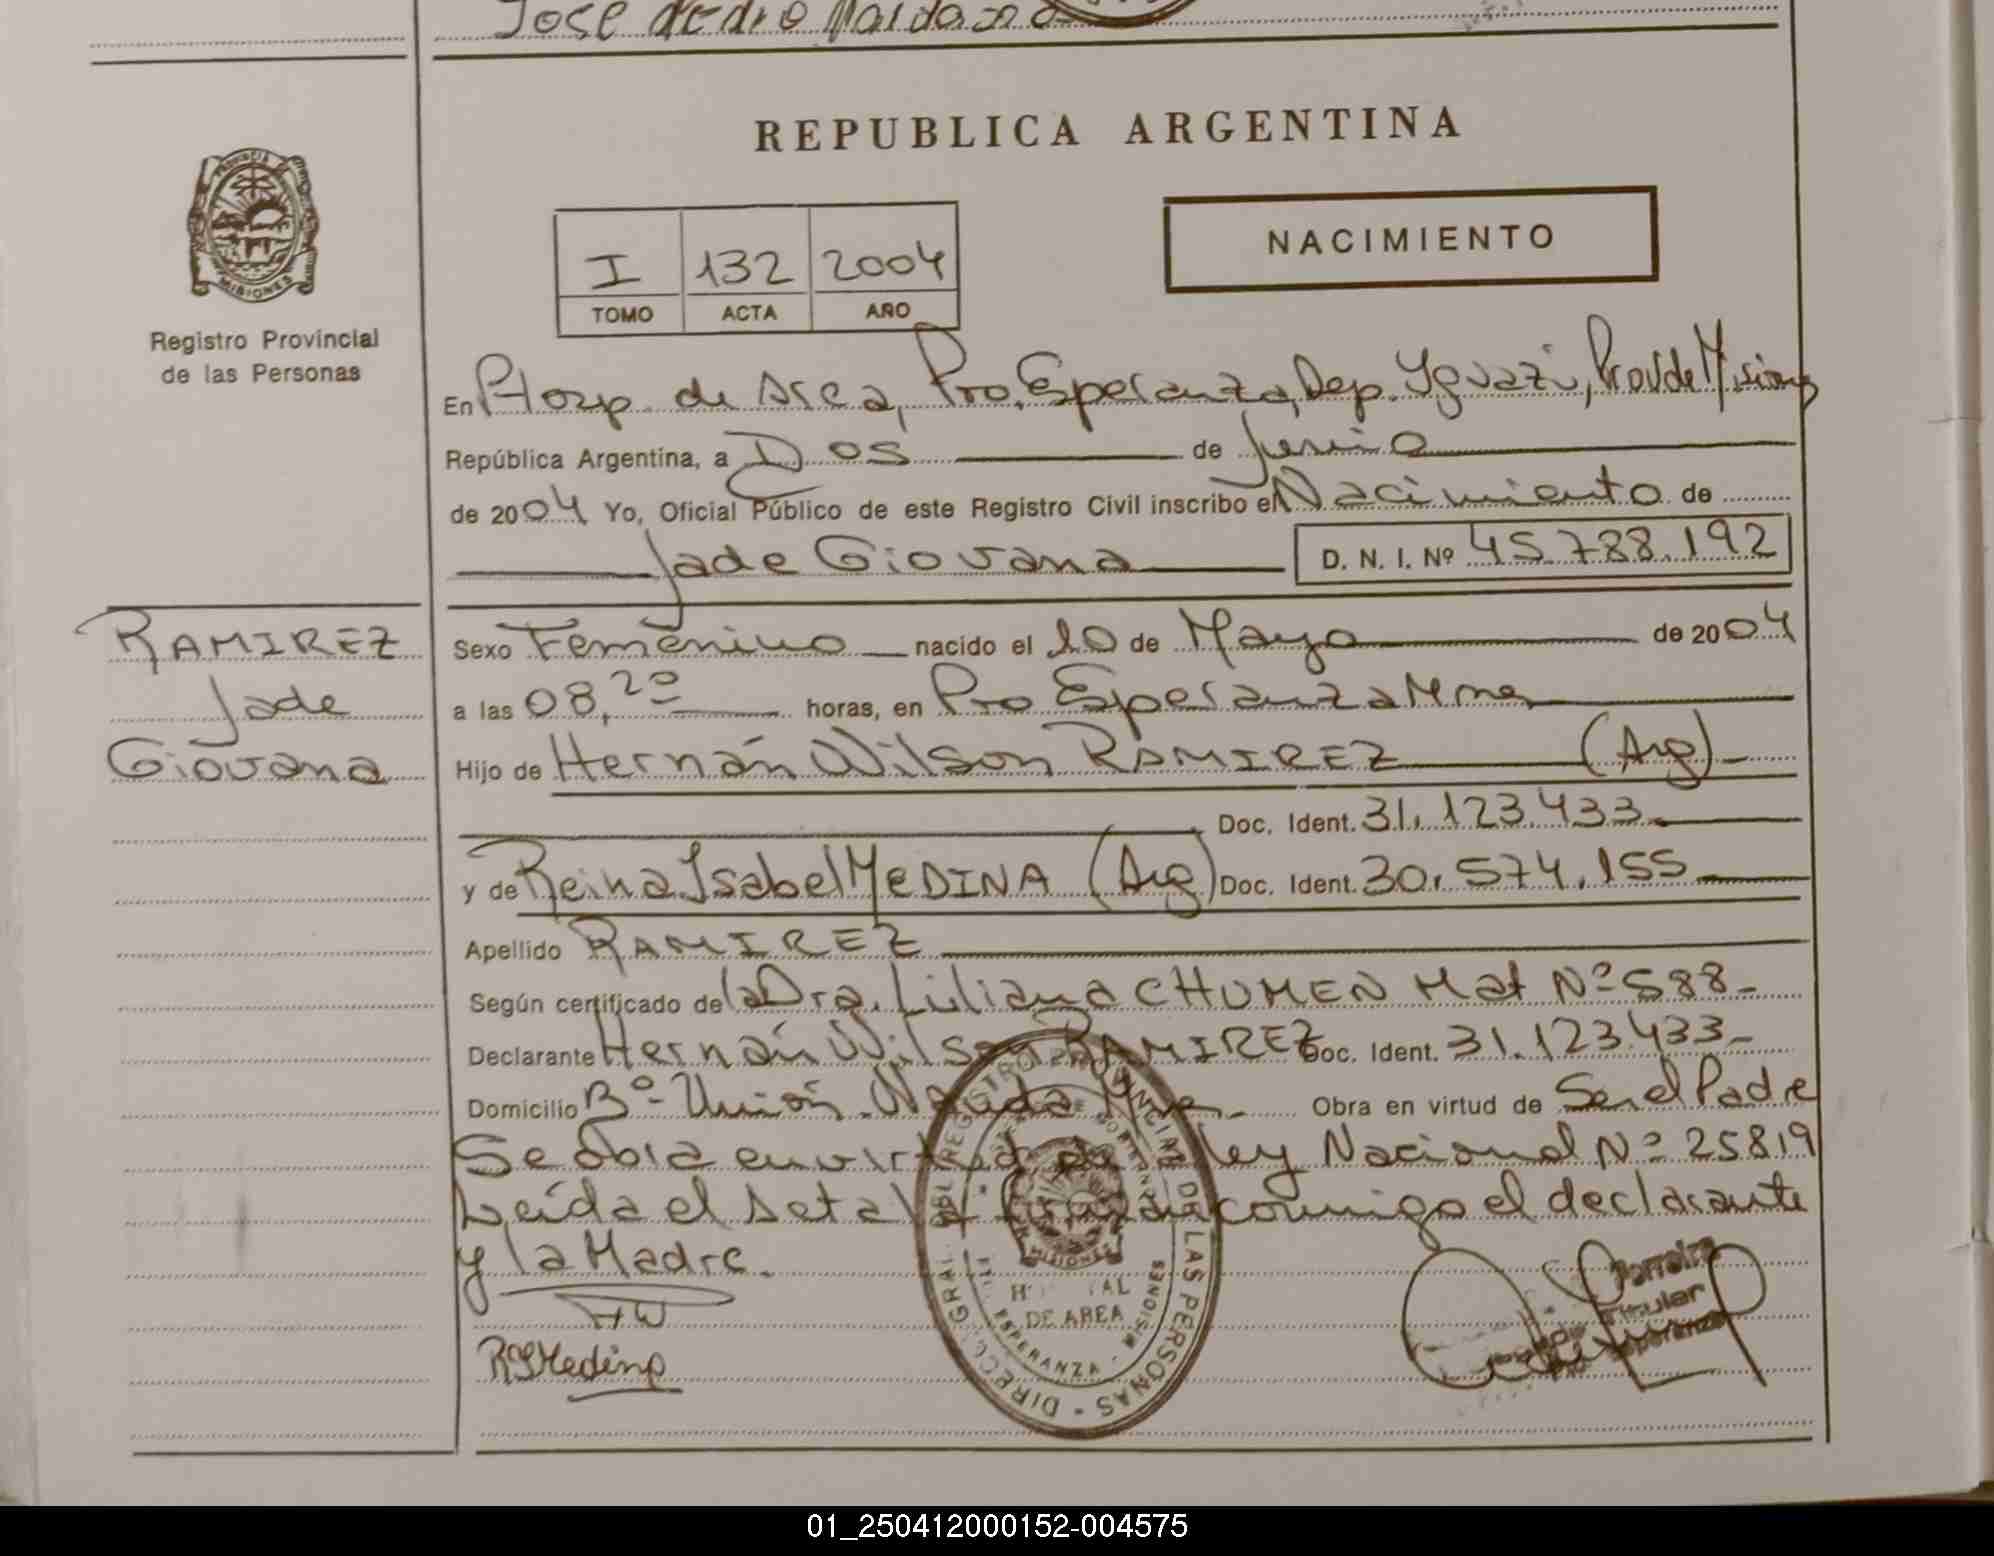 Jose Pedro Maidana
REPUBLICA ARGENTINA
PROVINCIA
MISIONES
Registro Provincial
de las Personas
I 132 2004
TOMO ACTA AÑO
NACIMIENTO
En Hosp. de Area, Pto. Esperanza, Dep. Yguazú, Prov. de Misiones
República Argentina, a Dos de Junio
de 2004 Yo, Oficial Público de este Registro Civil inscribo el Nacimiento de
Jade Giovana D. N. I. Nº 45.788.192
RAMIREZ
Jade
Giovana
Sexo Femenino nacido el 20 de Mayo de 2004
a las 08,20 horas, en Pto Esperanza Mnes
Hijo de Hernán Wilson RAMIREZ (Arg)
Doc. Ident. 31.123.433
y de Reina Isabel MEDINA (Arg) Doc. Ident. 30.574.155
Apellido RAMIREZ
Según certificado de la Dra. Liliana CHUMEN Mat Nº 588
Declarante Hernán Wilson RAMIREZ Doc. Ident. 31.123.433
Domicilio Bº Unión Wanda Mnes. Obra en virtud de Ser el Padre
Se obra en virtud de ley Nacional Nº 25819
Leída el acta la firman conmigo el declarante
y la Madre.
HW
RIMedina
DIRECC. GRAL. DEL REGISTRO PROVINCIAL DE LAS PERSONAS
MISIONES
DE AREA
ESPERANZA - MISIONES
Ferreira
Titular
Esperanza
01_250412000152-004575